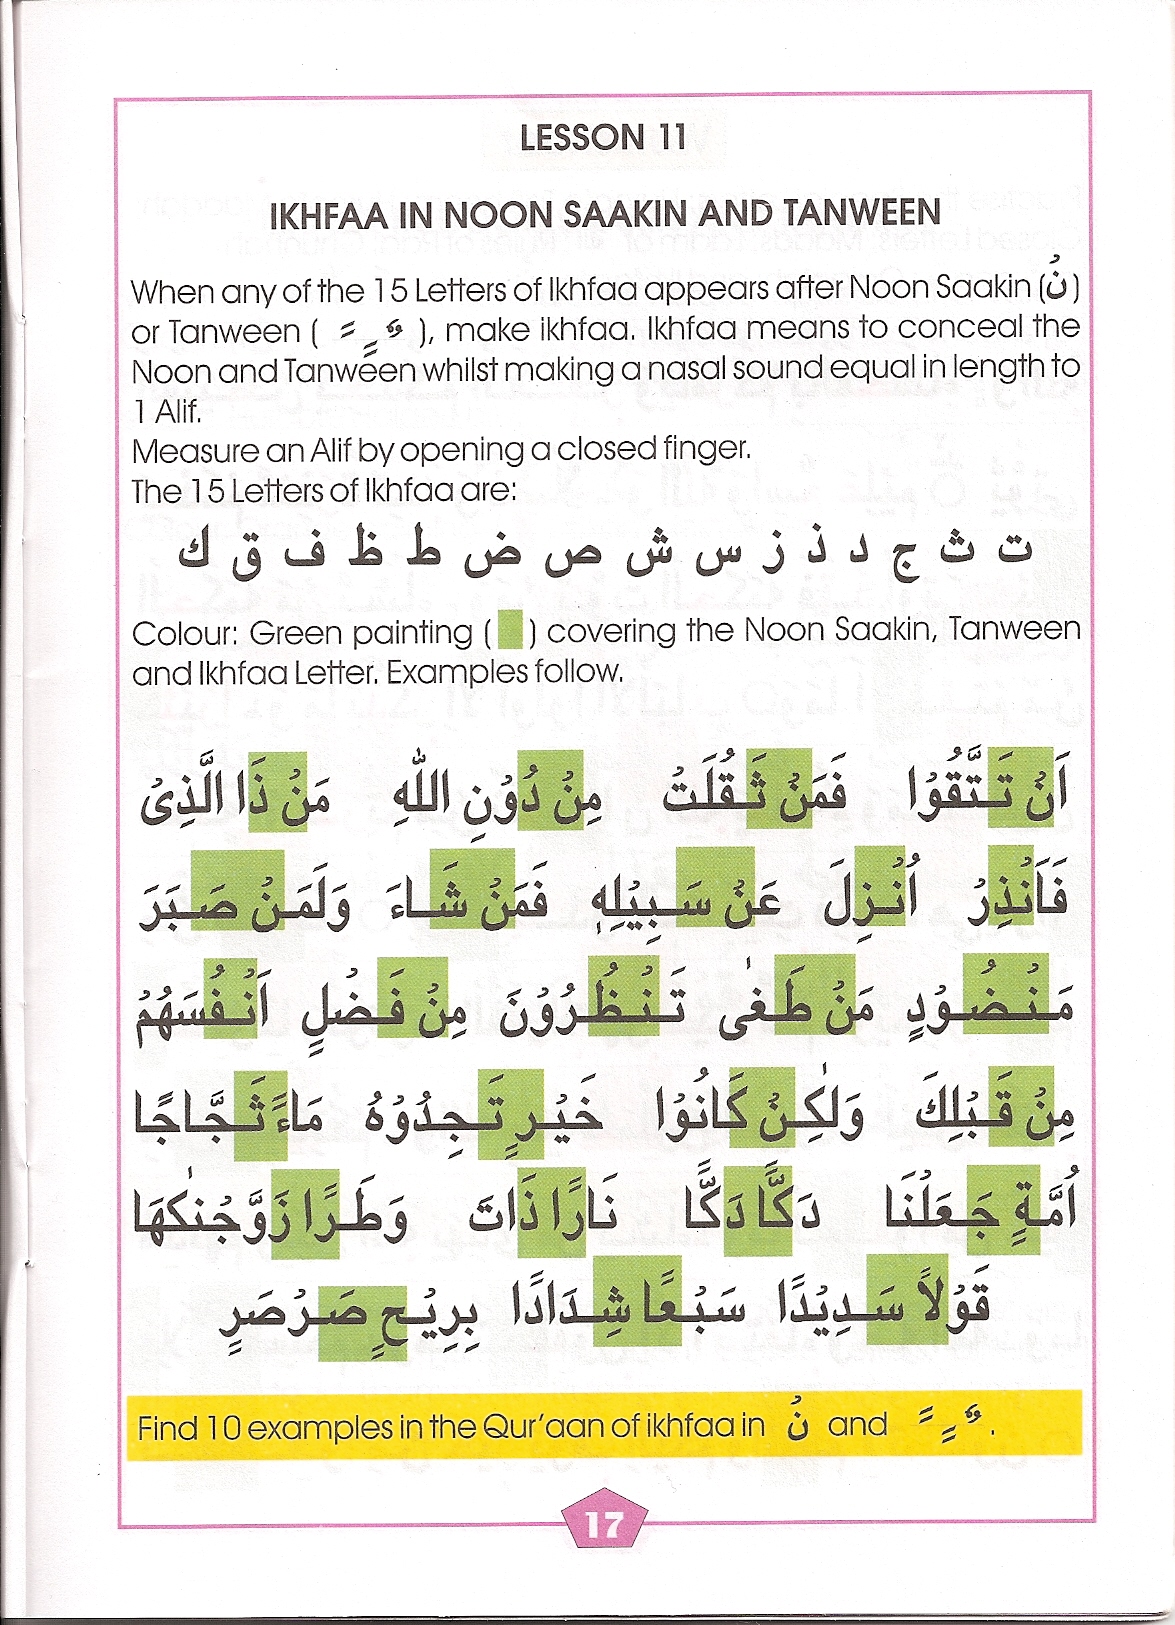 LESSON 11
IKHFAA IN NOON SAAKIN AND TANWEEN
When any of the 15 Letters of Ikhfaa appears after Noon Saakin (نْ)
or Tanween ( ـً ـٍ ـٌ ), make ikhfaa. Ikhfaa means to conceal the
Noon and Tanween whilst making a nasal sound equal in length to
1 Alif.
Measure an Alif by opening a closed finger.
The 15 Letters of Ikhfaa are:
ت ث ج د ذ ز س ش ص ض ط ظ ف ق ك
Colour: Green painting ( ) covering the Noon Saakin, Tanween
and Ikhfaa Letter. Examples follow.
اَنْ تَتَّقُوْا فَمَنْ ثَقُلَتْ مِنْ دُوْنِ اللّٰهِ مَنْ ذَا الَّذِىْ
فَاَنْذِرْ اُنْزِلَ عَنْ سَبِيْلِهٖ فَمَنْ شَاءَ وَلَمَنْ صَبَرَ
مَنْضُوْدٍ مَنْ طَغٰى تَنْظُرُوْنَ مِنْ فَضْلٍ اَنْفُسَهُمْ
مِنْ قَبْلِكَ وَلٰكِنْ كَانُوْا خَيْرٍ تَجِدُوْهُ مَاءً ثَجَّاجًا
اُمَّةٍ جَعَلْنَا دَكًّا دَكًّا نَارًا ذَاتَ وَطَرًا زَوَّجْنٰكَهَا
قَوْلاً سَدِيْدًا سَبْعًا شِدَادًا بِرِيْحٍ صَرْصَرٍ
Find 10 examples in the Qur'aan of ikhfaa in نْ and ـً ـٍ ـٌ .
17